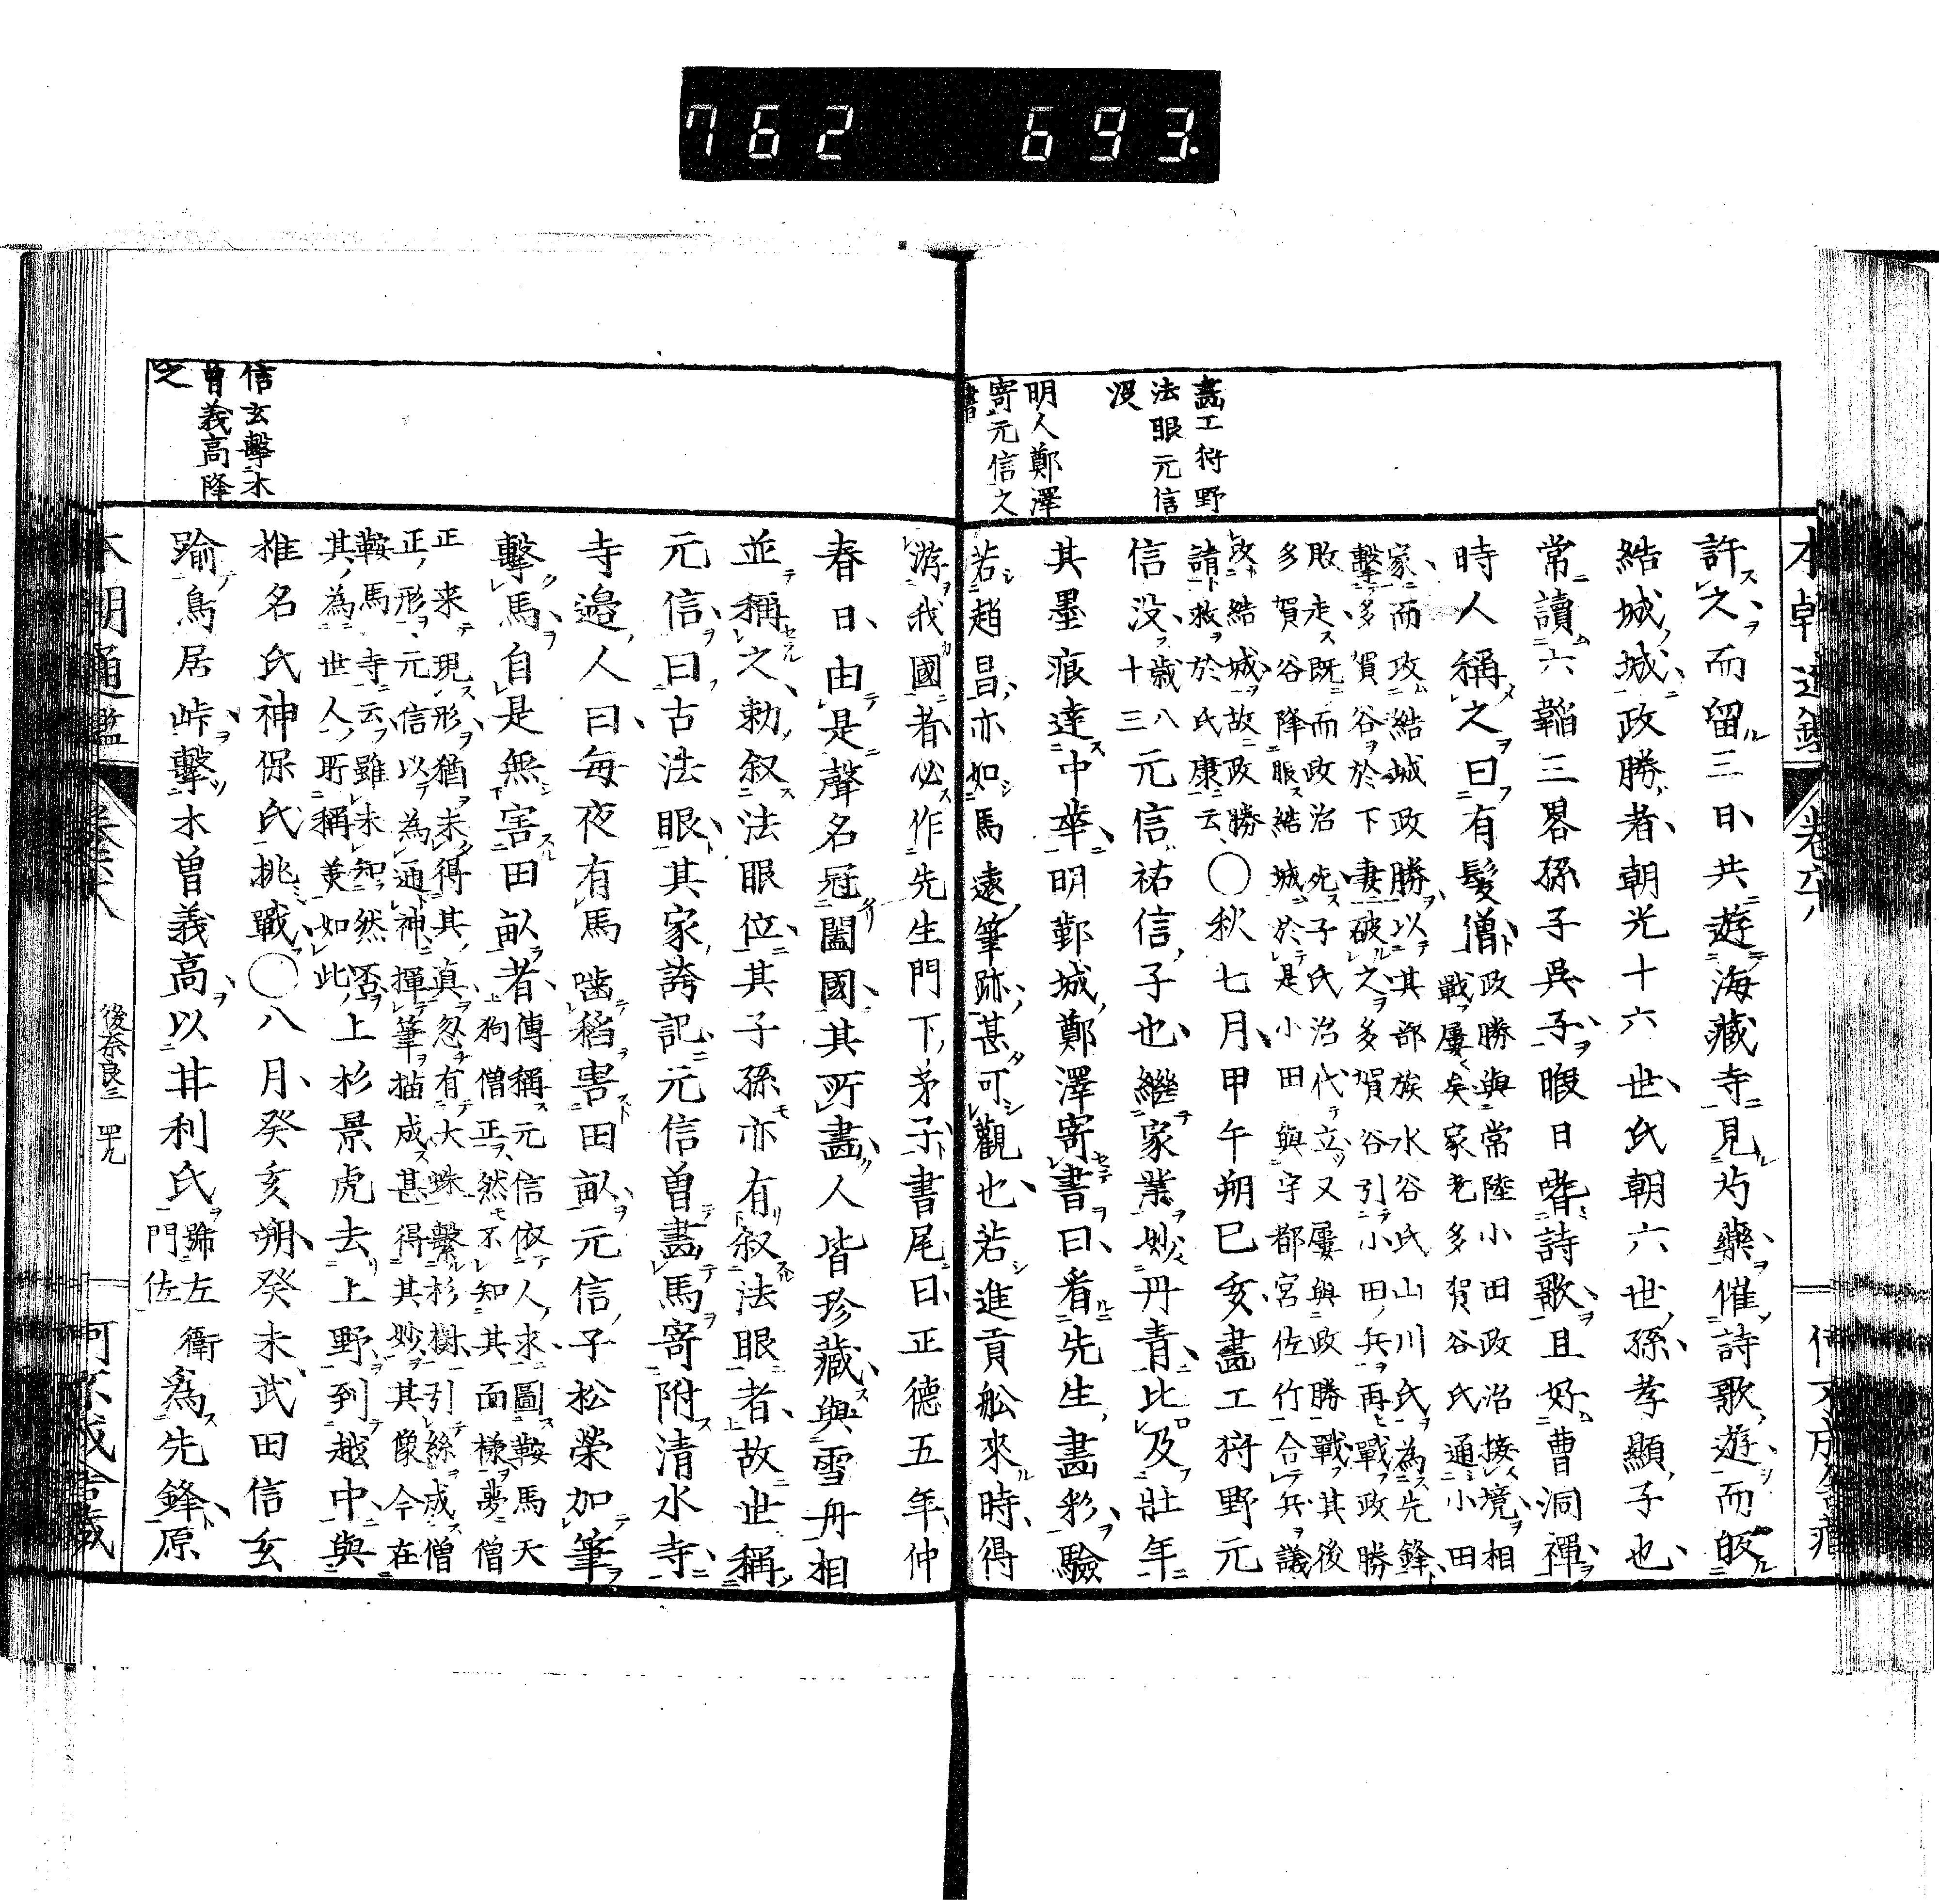 762 693.
畵工狩野
法眼元信
沒
明人鄭澤
寄元信之
書
許之而留三日共遊海藏寺見芍藥催詩歌遊而皈
結城城政勝者朝光十六世氏朝六世孫孝顯子也
常讀六韜三畧孫子吳子暇日嗜詩歌且好曹洞禪
時人稱之曰有髮僧
政勝與常陸小田政治接境相
戰屢矣家老多賀谷氏通小田
家而攻結城政勝以其部族水谷氏山川氏為先鋒
擊多賀谷於下妻破之多賀谷引小田兵再戰政勝
敗走既而政治死子氏治代立又屢與政勝戰其後
多賀谷降服結城於是小田與宇都宮佐竹合兵議
攻結城故政勝
請救於氏康云
〇秋七月甲午朔己亥畵工狩野元
信沒
歲八
十三
元信祐信子也繼家業妙丹青比及壯年
其墨痕達中華明鄞城鄭澤寄書曰看先生畵彩驗
若趙昌亦如馬遠筆跡甚可觀也若進貢舩來時得
游我國者必作先生門下茅子書尾曰正德五年仲
春日由是聲名冠闔國其所畵人皆珍藏與雪舟相
並稱之勅叙法眼位其子孫亦有叙法眼者故世稱
元信曰古法眼其家誇記元信曽畵馬寄附清水寺
寺邉人曰每夜有馬嚙稻害田畝元信子松榮加筆
擊馬自是無害田畝者
傳稱元信依人求圖鞍馬天
狗僧正然不知其面樣夢僧
正来現形猶未得其真忽有大蛛繫杉樹引絲成僧
正形元信以為通神揮筆描成甚得其妙其像今在
鞍馬寺云雖未知然否
其為世人所稱美如此
上杉景虎去上野到越中與
椎名氏神保氏挑戰〇八月癸亥朔癸未武田信玄
踰鳥居峠擊木曽義高以井利氏
號左衛
門佐
爲先鋒原
信玄擊木
曽義高降
之
本朝通鑑
後奈良三